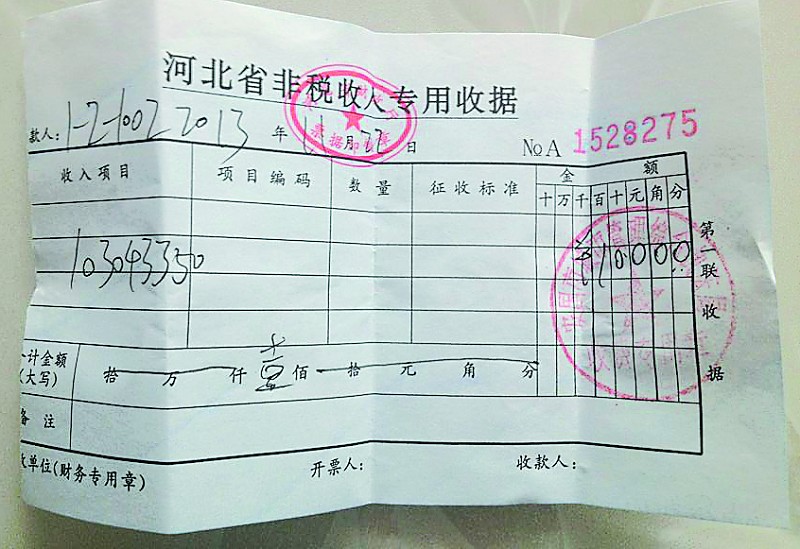 河北省非税收入专用收据
款人: 1-2-1002 2013 年 11 月 22 日 №A 1528275
收入项目 项目编码 数量 征收标准 金额
十 万 千 百 十 元 角 分
103043350 1 0 0 0 0
第一联 收据
计金额(大写) 拾 万 仟 壹 佰 拾 元 角 分
备注
收单位(财务专用章) 开票人: 收款人: